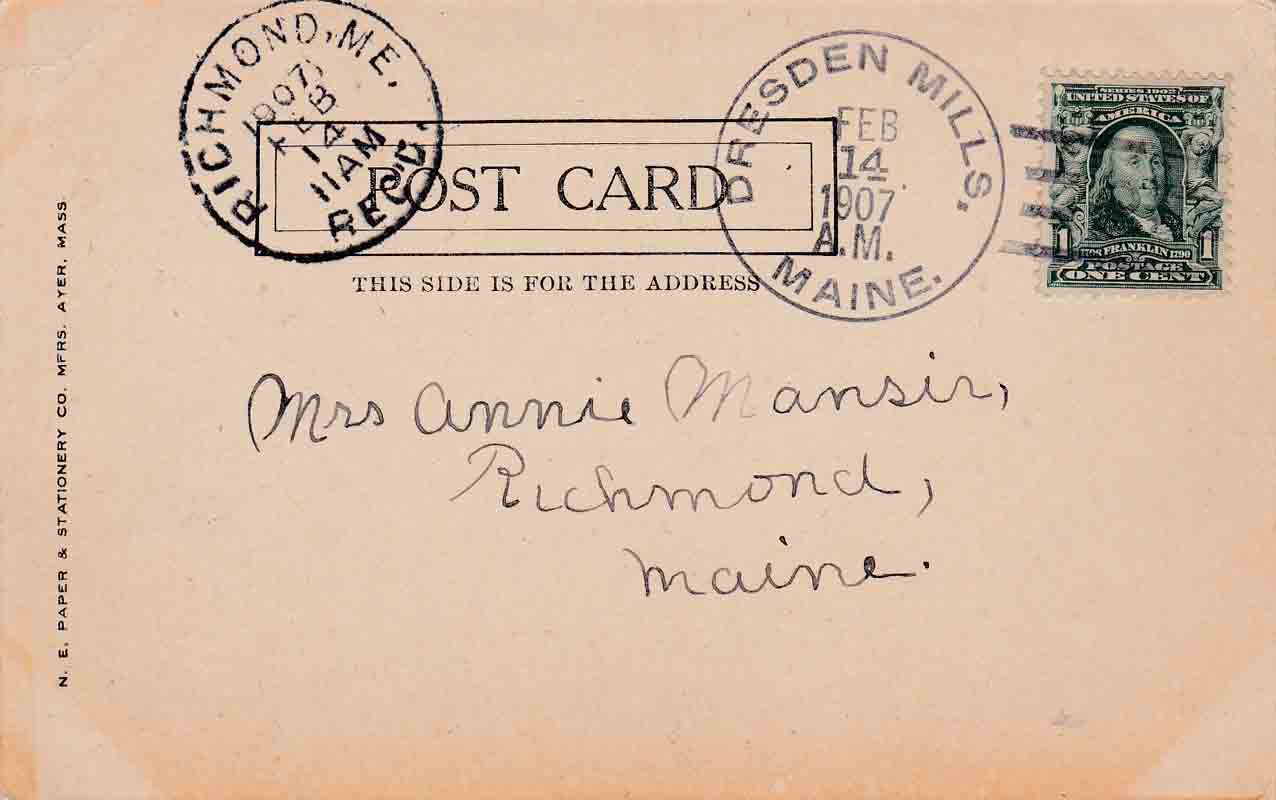 RICHMOND, ME.
1907
FEB
14
11AM
REC'D.
DRESDEN MILLS,
FEB
14
1907
A.M.
MAINE.
SERIES 1902
UNITED STATES OF
AMERICA
1 FRANKLIN 1790 1
POSTAGE
ONE CENT
POST CARD
THIS SIDE IS FOR THE ADDRESS
Mrs Annie Mansir,
Richmond,
Maine.
N. E. PAPER & STATIONERY CO. MFRS. AYER, MASS